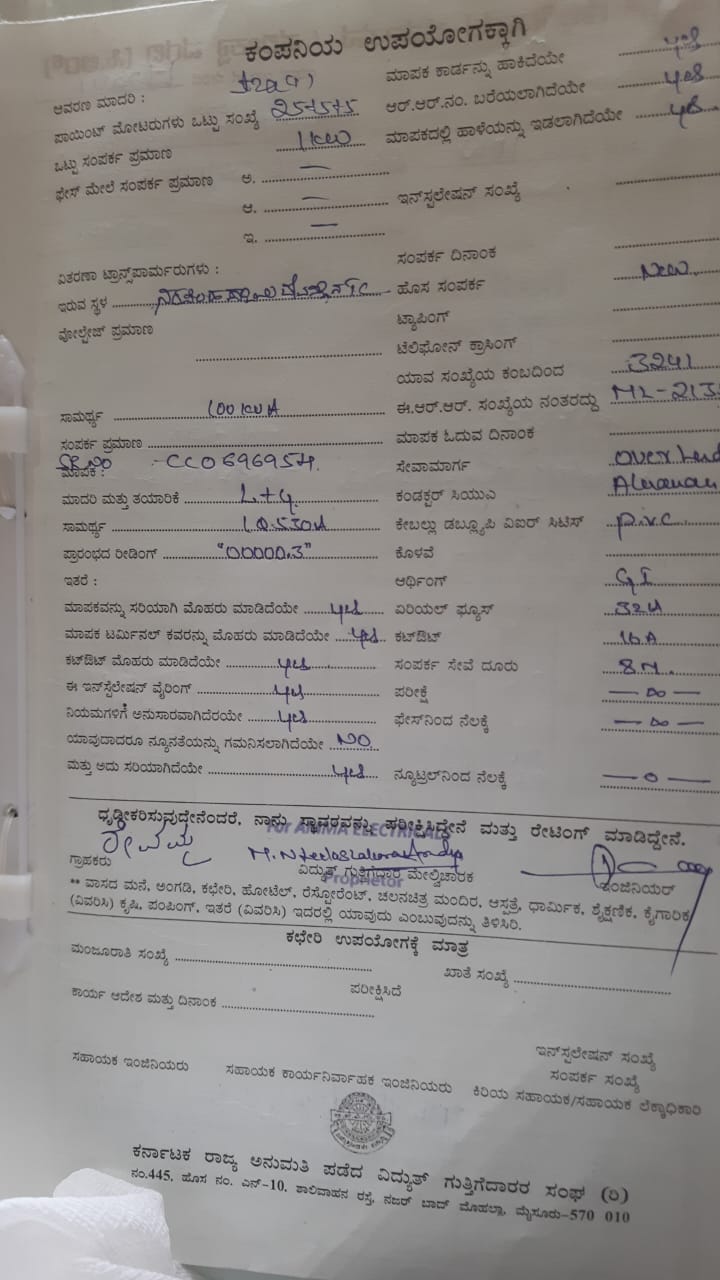 ಕಂಪನಿಯ ಉಪಯೋಗಕ್ಕಾಗಿ
ಆವರಣ ಮಾದರಿ : ಮಾಪಕ ಕಾರ್ಡನ್ನು ಹಾಕಿದೆಯೇ yes
ಪಾಯಿಂಟ್ ಮೋಟರುಗಳು ಒಟ್ಟು ಸಂಖ್ಯೆ 25+5+5 ಆರ್.ಆರ್.ನಂ. ಬರೆಯಲಾಗಿದೆಯೇ yes
ಒಟ್ಟು ಸಂಪರ್ಕ ಪ್ರಮಾಣ 1KW ಮಾಪಕದಲ್ಲಿ ಹಾಳೆಯನ್ನು ಇಡಲಾಗಿದೆಯೇ yes
ಫೇಸ್ ಮೇಲೆ ಸಂಪರ್ಕ ಪ್ರಮಾಣ ಅ. —
ಆ. — ಇನ್‌ಸ್ಟಲೇಷನ್ ಸಂಖ್ಯೆ
ಇ. —
ಸಂಪರ್ಕ ದಿನಾಂಕ
ವಿತರಣಾ ಟ್ರಾನ್ಸ್‌ಪಾರ್ಮರುಗಳು :
ಇರುವ ಸ್ಥಳ ಹೊಸ ಸಂಪರ್ಕ New
ವೋಲ್ಟೇಜ್ ಪ್ರಮಾಣ ಟ್ಯಾಪಿಂಗ್
ಟೆಲಿಫೋನ್ ಕ್ರಾಸಿಂಗ್
ಯಾವ ಸಂಖ್ಯೆಯ ಕಂಬದಿಂದ 3241
ಸಾಮರ್ಥ್ಯ 100 KVA ಈ.ಆರ್.ಆರ್. ಸಂಖ್ಯೆಯ ನಂತರದ್ದು ML-213
ಸಂಪರ್ಕ ಪ್ರಮಾಣ ಮಾಪಕ ಓದುವ ದಿನಾಂಕ
SR.NO CC0696954
ಮಾಪಕ : ಸೇವಾಮಾರ್ಗ over head
ಮಾದರಿ ಮತ್ತು ತಯಾರಿಕೆ L+G ಕಂಡಕ್ಟರ್ ಸಿಯುಎ
ಸಾಮರ್ಥ್ಯ ಕೇಬಲ್ಲು ಡಬ್ಲ್ಯೂಪಿ ವಿಐರ್ ಸಿಟಿಸ್ P.V.C
ಪ್ರಾರಂಭದ ರೀಡಿಂಗ್ "00000.3" ಕೊಳವೆ
ಇತರೆ : ಆರ್ಥಿಂಗ್ G I
ಮಾಪಕವನ್ನು ಸರಿಯಾಗಿ ಮೊಹರು ಮಾಡಿದೆಯೇ yes ಏರಿಯಲ್ ಫ್ಯೂಸ್ 32A
ಮಾಪಕ ಟರ್ಮಿನಲ್ ಕವರನ್ನು ಮೊಹರು ಮಾಡಿದೆಯೇ yes ಕಟ್‌ಔಟ್ 16A
ಕಟ್‌ಔಟ್ ಮೊಹರು ಮಾಡಿದೆಯೇ yes ಸಂಪರ್ಕ ಸೇವೆ ದೂರು 8M.
ಈ ಇನ್‌ಸ್ಟಲೇಷನ್ ವೈರಿಂಗ್ yes ಪರೀಕ್ಷೆ — ∞ —
ನಿಯಮಗಳಿಗೆ ಅನುಸಾರವಾಗಿದೆರಯೇ yes ಫೇಸ್‌ನಿಂದ ನೆಲಕ್ಕೆ — ∞ —
ಯಾವುದಾದರೂ ನ್ಯೂನತೆಯನ್ನು ಗಮನಿಸಲಾಗಿದೆಯೇ NO
ಮತ್ತು ಅದು ಸರಿಯಾಗಿದೆಯೇ yes ನ್ಯೂಟ್ರಲ್‌ನಿಂದ ನೆಲಕ್ಕೆ — 0 —
ಧೃಢೀಕರಿಸುವುದೇನೆಂದರೆ, ನಾನು ಸ್ಥಾವರವನ್ನು ಪರೀಕ್ಷಿಸಿದ್ದೇನೆ ಮತ್ತು ರೇಟಿಂಗ್ ಮಾಡಿದ್ದೇನೆ.
For AMMA ELECTRICALS
ಗ್ರಾಹಕರು ವಿದ್ಯುತ್ ಗುತ್ತಿಗೆದಾರ ಮೇಲ್ವಿಚಾರಕ ಇಂಜಿನಿಯರ್
Proprietor
** ವಾಸದ ಮನೆ, ಅಂಗಡಿ, ಕಛೇರಿ, ಹೋಟೆಲ್, ರೆಸ್ಟೋರೆಂಟ್, ಚಲನಚಿತ್ರ ಮಂದಿರ, ಆಸ್ಪತ್ರೆ, ಧಾರ್ಮಿಕ, ಶೈಕ್ಷಣಿಕ, ಕೈಗಾರಿಕ
(ವಿವರಿಸಿ) ಕೃಷಿ, ಪಂಪಿಂಗ್, ಇತರೆ (ವಿವರಿಸಿ) ಇದರಲ್ಲಿ ಯಾವುದು ಎಂಬುವುದನ್ನು ತಿಳಿಸಿರಿ.
ಕಛೇರಿ ಉಪಯೋಗಕ್ಕೆ ಮಾತ್ರ
ಮಂಜೂರಾತಿ ಸಂಖ್ಯೆ ಖಾತೆ ಸಂಖ್ಯೆ
ಕಾರ್ಯ ಆದೇಶ ಮತ್ತು ದಿನಾಂಕ ಪರೀಕ್ಷಿಸಿದೆ
ಇನ್‌ಸ್ಟಲೇಷನ್ ಸಂಖ್ಯೆ
ಸಂಪರ್ಕ ಸಂಖ್ಯೆ
ಸಹಾಯಕ ಇಂಜಿನಿಯರು ಸಹಾಯಕ ಕಾರ್ಯನಿರ್ವಾಹಕ ಇಂಜಿನಿಯರು ಕಿರಿಯ ಸಹಾಯಕ/ಸಹಾಯಕ ಲೆಕ್ಕಾಧಿಕಾರಿ
ಕರ್ನಾಟಕ ರಾಜ್ಯ ಅನುಮತಿ ಪಡೆದ ವಿದ್ಯುತ್ ಗುತ್ತಿಗೆದಾರರ ಸಂಘ (ರಿ)
ನಂ.445, ಹೊಸ ನಂ. ಎನ್-10, ಶಾಲಿವಾಹನ ರಸ್ತೆ, ನಜರ್ ಬಾದ್ ಮೊಹಲ್ಲಾ, ಮೈಸೂರು-570 010